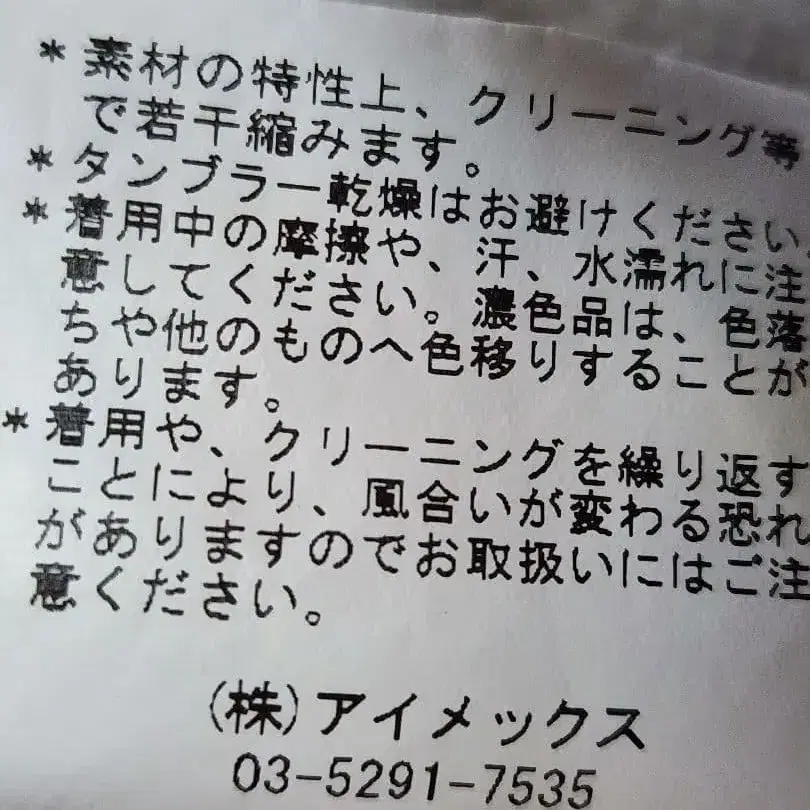 * 素材の特性上、クリーニング等
で若干縮みます。
* タンブラー乾燥はお避けください。
* 着用中の摩擦や、汗、水濡れに注
意してください。濃色品は、色落
ちや他のものへ色移りすることが
あります。
* 着用や、クリーニングを繰り返す
ことにより、風合いが変わる恐れ
がありますのでお取扱いにはご注
意ください。
(株)アイメックス
03-5291-7535